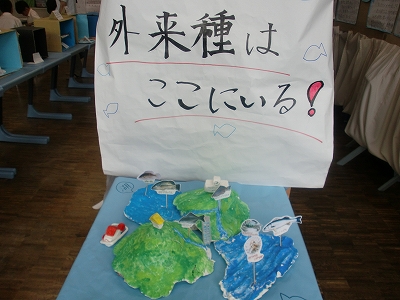 外来種は
ここにいる!